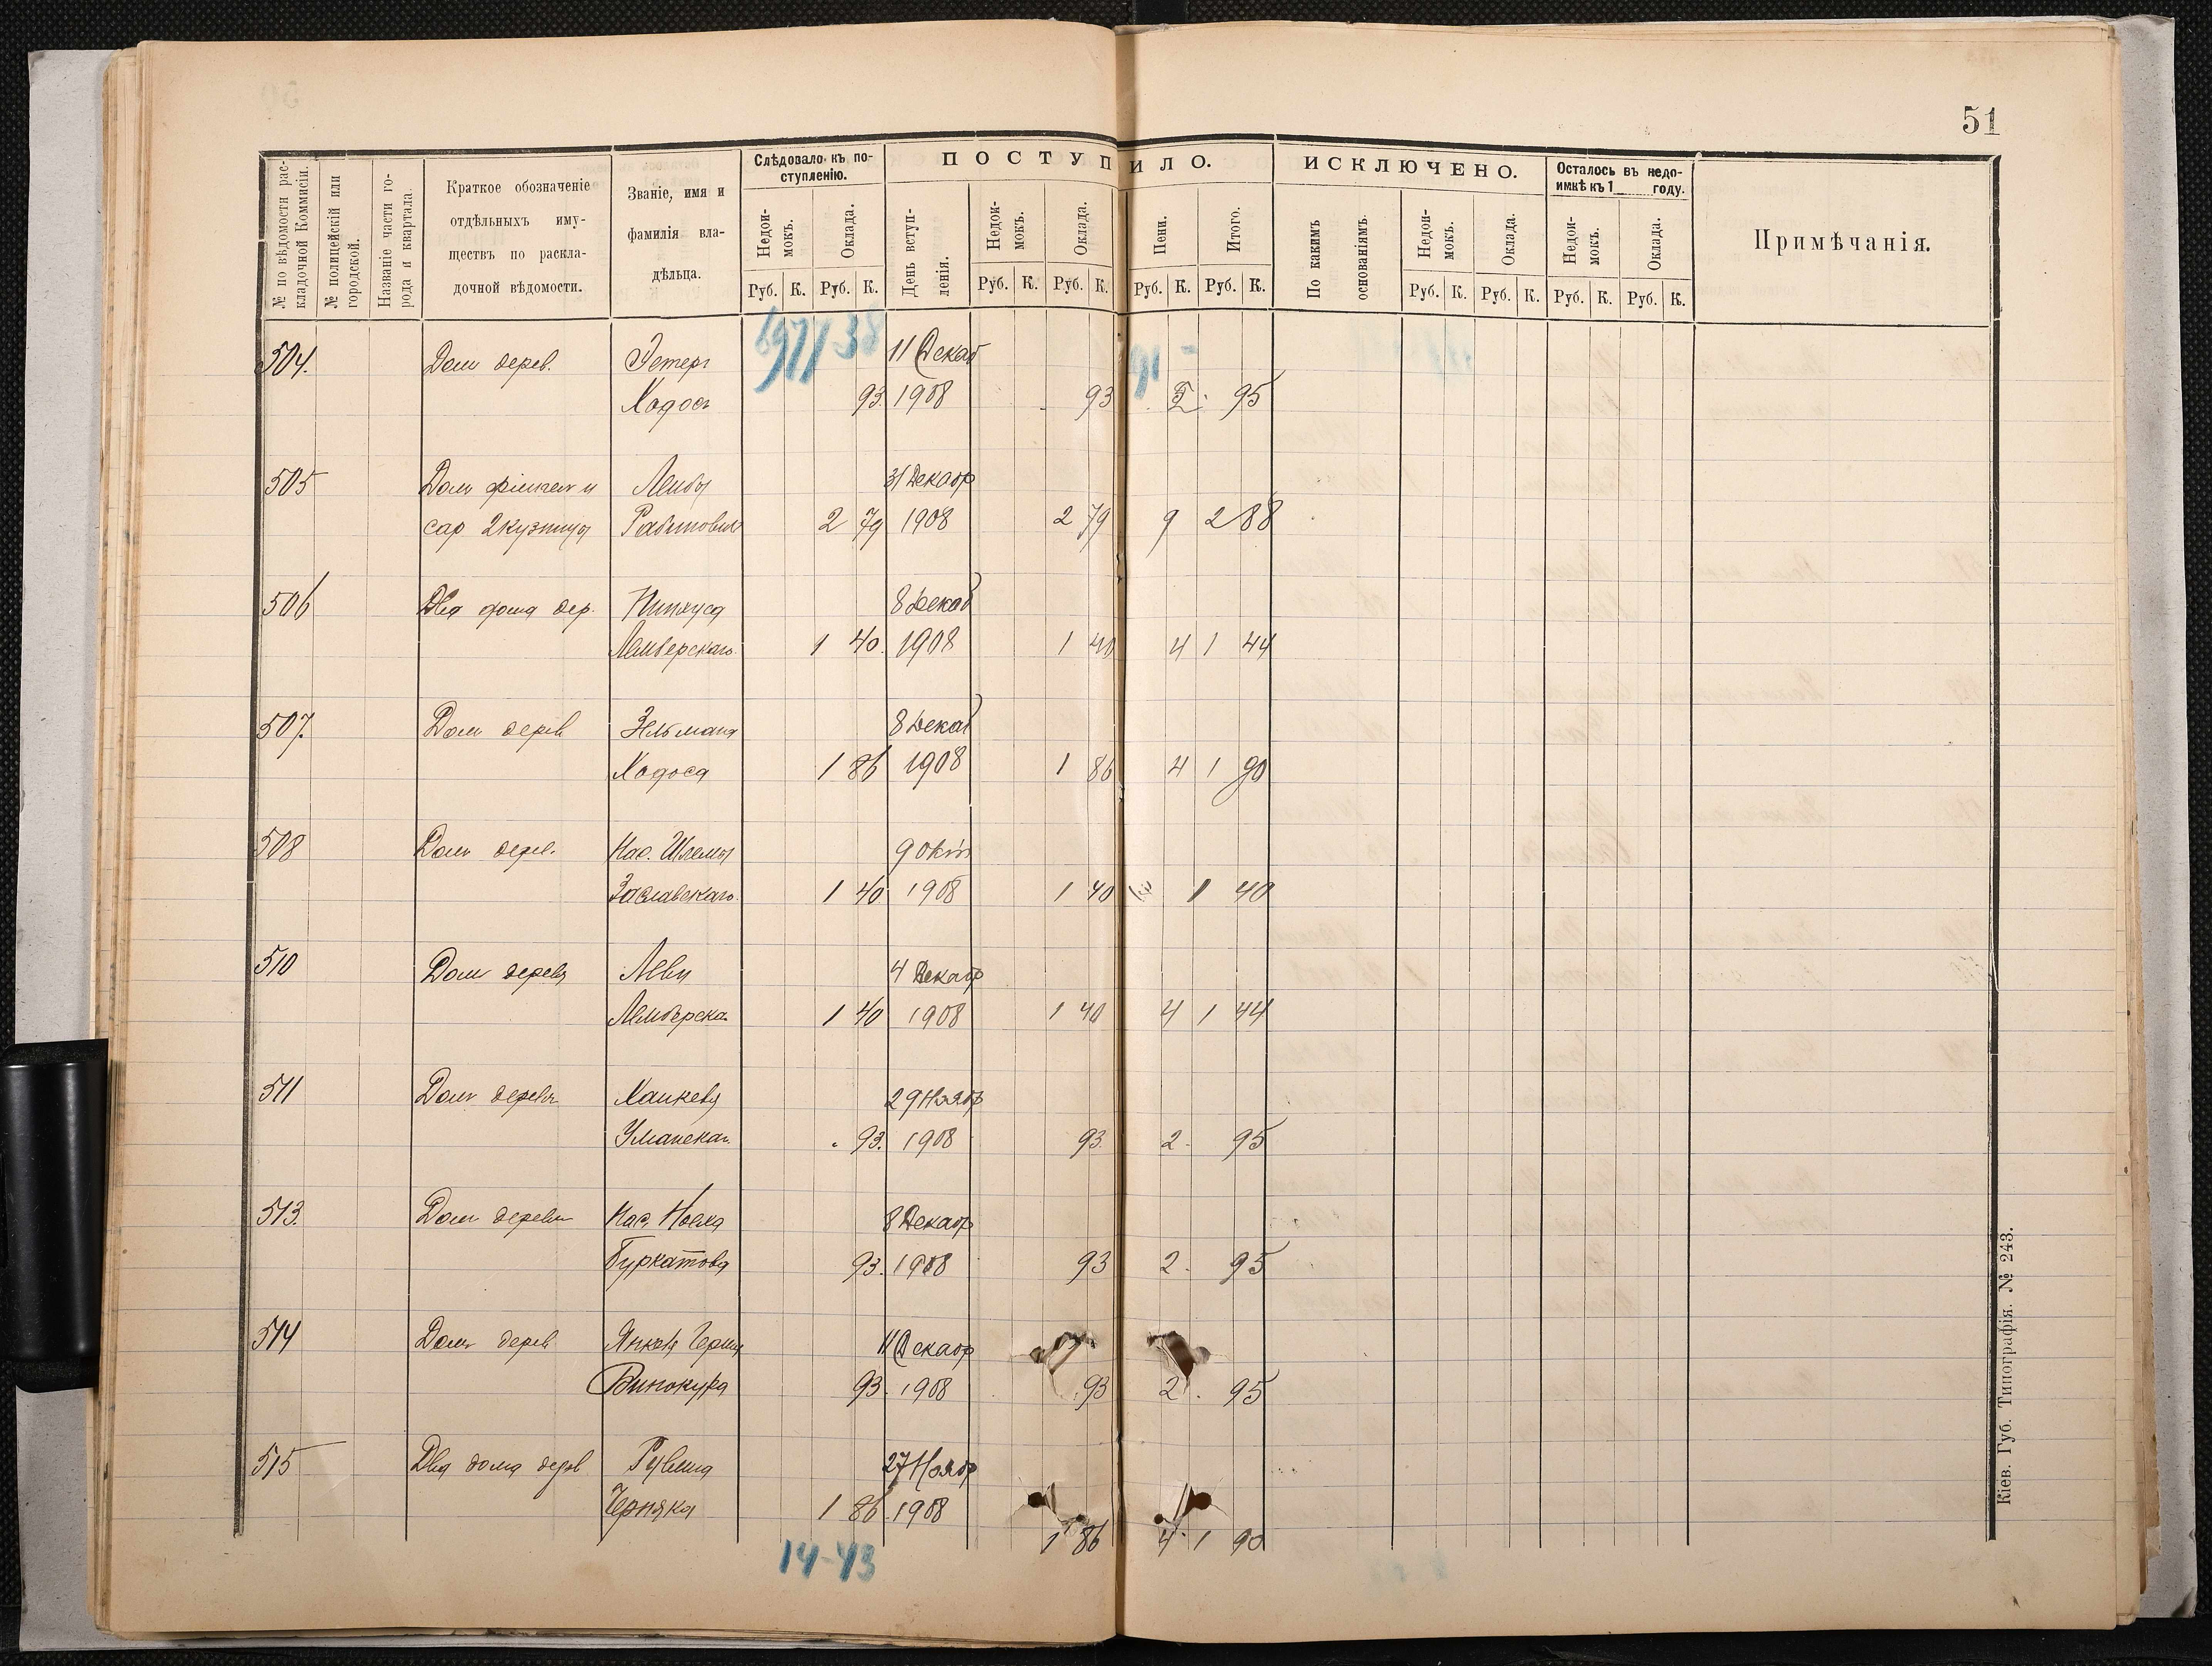 51
№ по вѣдомости рас-
кладочной Коммисіи.
№ полицейскій или
городской.
Названіе части го-
рода и квартала.
Краткое обозначеніе
отдѣльныхъ иму-
ществъ по раскла-
дочной вѣдомости.
Званіе, имя и
фамилія вла-
дѣльца.
Слѣдовало къ по-
ступленію.
Недои-
мокъ.
Оклада.
Руб. К. Руб. К.
ПОСТУПИЛО.
День вступ-
ленія.
Недои-
мокъ.
Оклада.
Пени.
Итого.
Руб. К. Руб. К. Руб. К. Руб. К.
ИСКЛЮЧЕНО.
По какимъ
основаніямъ.
Недои-
мокъ.
Оклада.
Руб. К. Руб. К.
Осталось въ недо-
имкѣ къ 1 году.
Недои-
мокъ.
Оклада.
Руб. К. Руб. К.
Примѣчанія.
504. Дом дерев. Эстер 11 Декаб
Ходос 93. 1908 93 2. 95
505 Дом и Лейбы 31 Декабр
сар 2 кузницы Рабинович 2 79 1908 2 79 9 2 88
506 Два дома дер. Пинхуса 8 Декаб
Лемберскаго 1 40. 1908 1 40 4 1 44
507. Дом дерев Зельмана 8 Декаб
Ходоса 1 86 1908 1 86 4 1 90
508 Дом дерев. Нас. Шлемы 9 окт
Заславскаго 1 40 1908 1 40 1 40
510 Дом дерев Леви 4 Декабр
Лемберска 1 40 1908 1 40 4 1 44
511 Дом дерев 29 Ноябр
Уманскаг. 93. 1908 93. 2. 95
513. Дом дерев Нас. 8 Декабр
Буркатова 93. 1908 93 2. 95
514 Дом дерев Янкеля 11 Декабр
Винокура 93. 1908 93 2. 95
515 Два дома дерев Рувина 27 Ноябр
Черняка 1 86. 1908
1 86 4. 1 90
14-43
Кіев. Губ. Типографія. № 243.